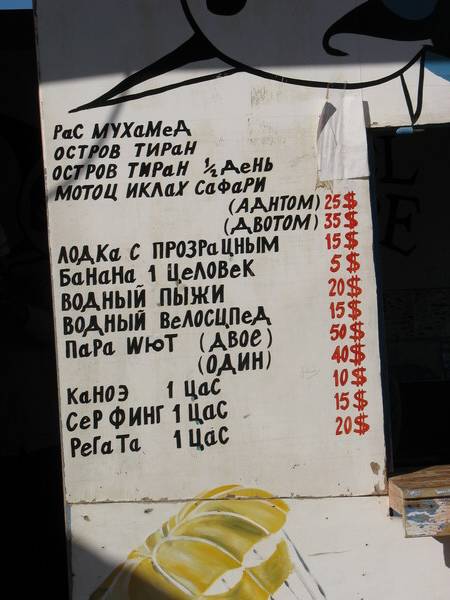 РаС МУХаМеД
ОСТРОВ ТИРаН
ОСТРОВ ТИРаН ½ ДеНЬ
МОТОЦ ИКЛаХ СаФаРИ
(АДНТОМ) 25$
(ДВОТОМ) 35$
ЛОДКа С ПРОЗРаЦНЫМ 15$
БаНаНа 1 ЦеЛОВеК 5$
ВОДНЫЙ ПЫЖИ 20$
ВОДНЫЙ ВеЛОСЦПеД 15$
ПаРа WЮТ (ДВОЕ) 50$
(ОДИН) 40$
КаНОЭ 1 ЦаС 10$
СеР ФИНГ 1 ЦаС 15$
РеГаТа 1 ЦаС 20$